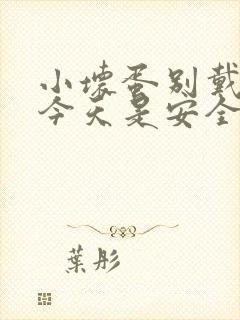 小壞蛋別戴
今天是安全
葉彤